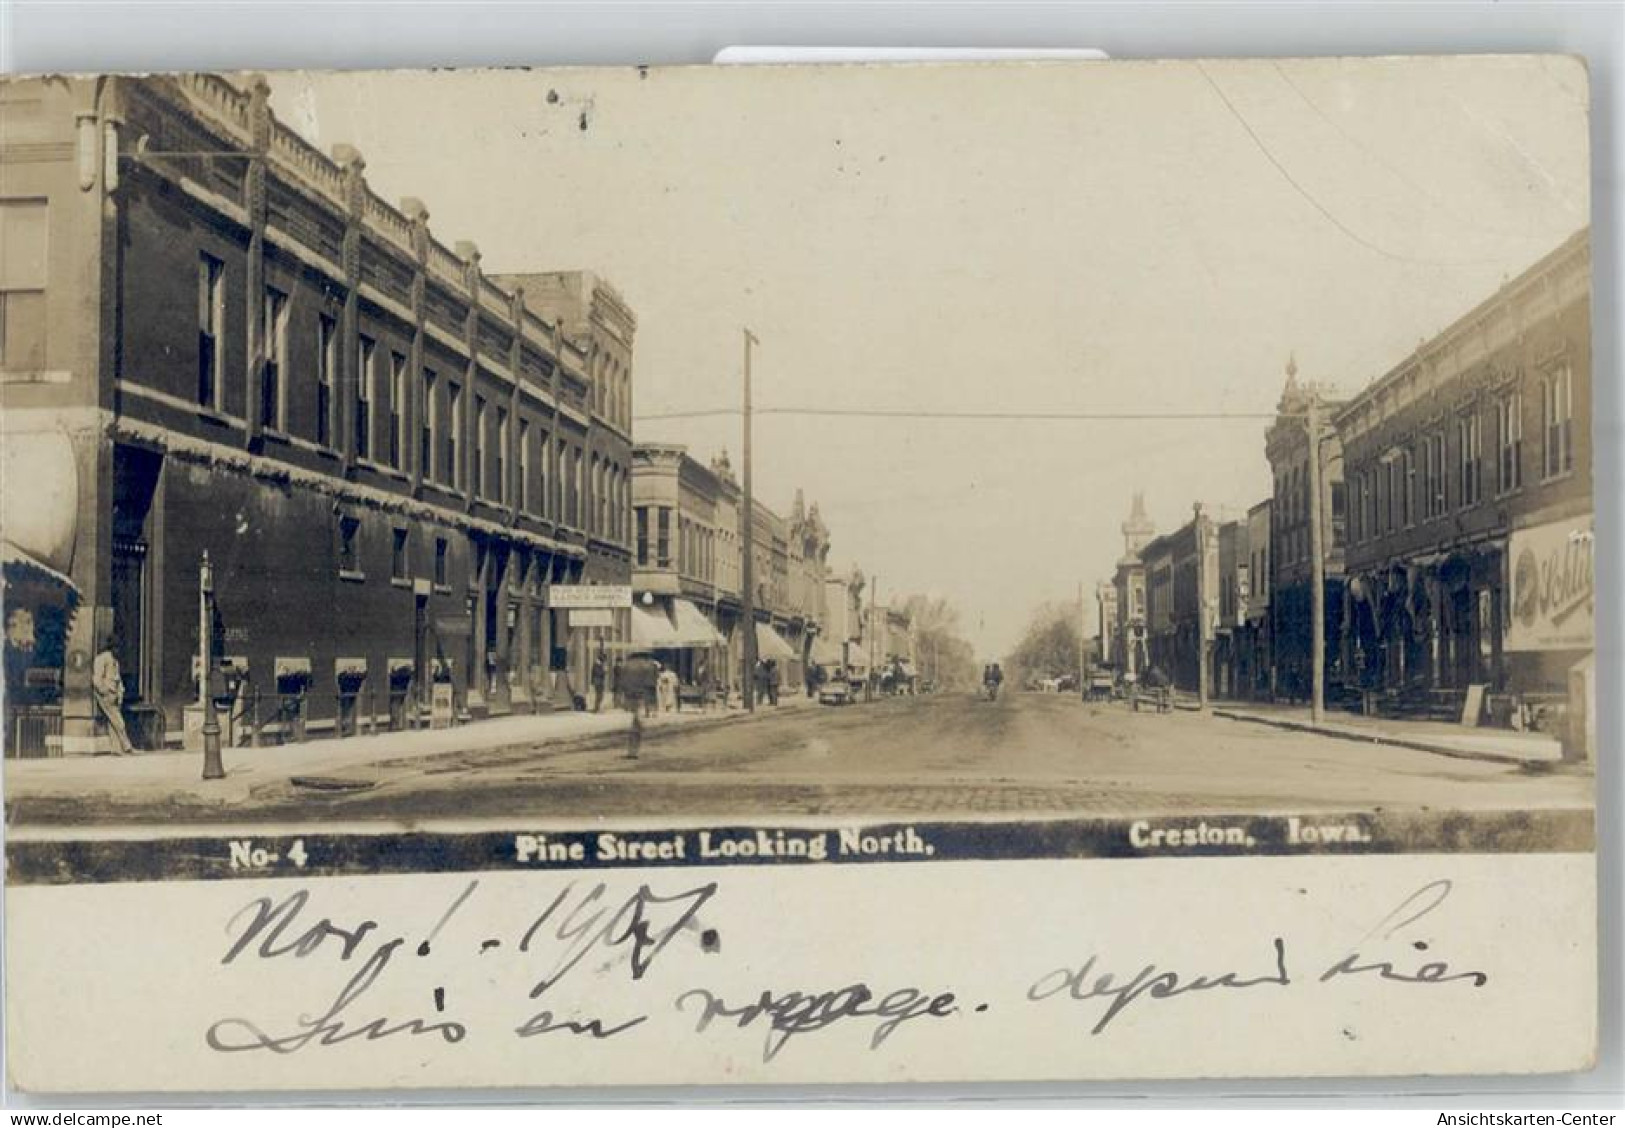 Schlitz
No- 4 Pine Street Looking North. Creston, Iowa.
Nov. 1. - 1907.
Suis en voyage. depuis hier
www.delcampe.net
Ansichtskarten-Center